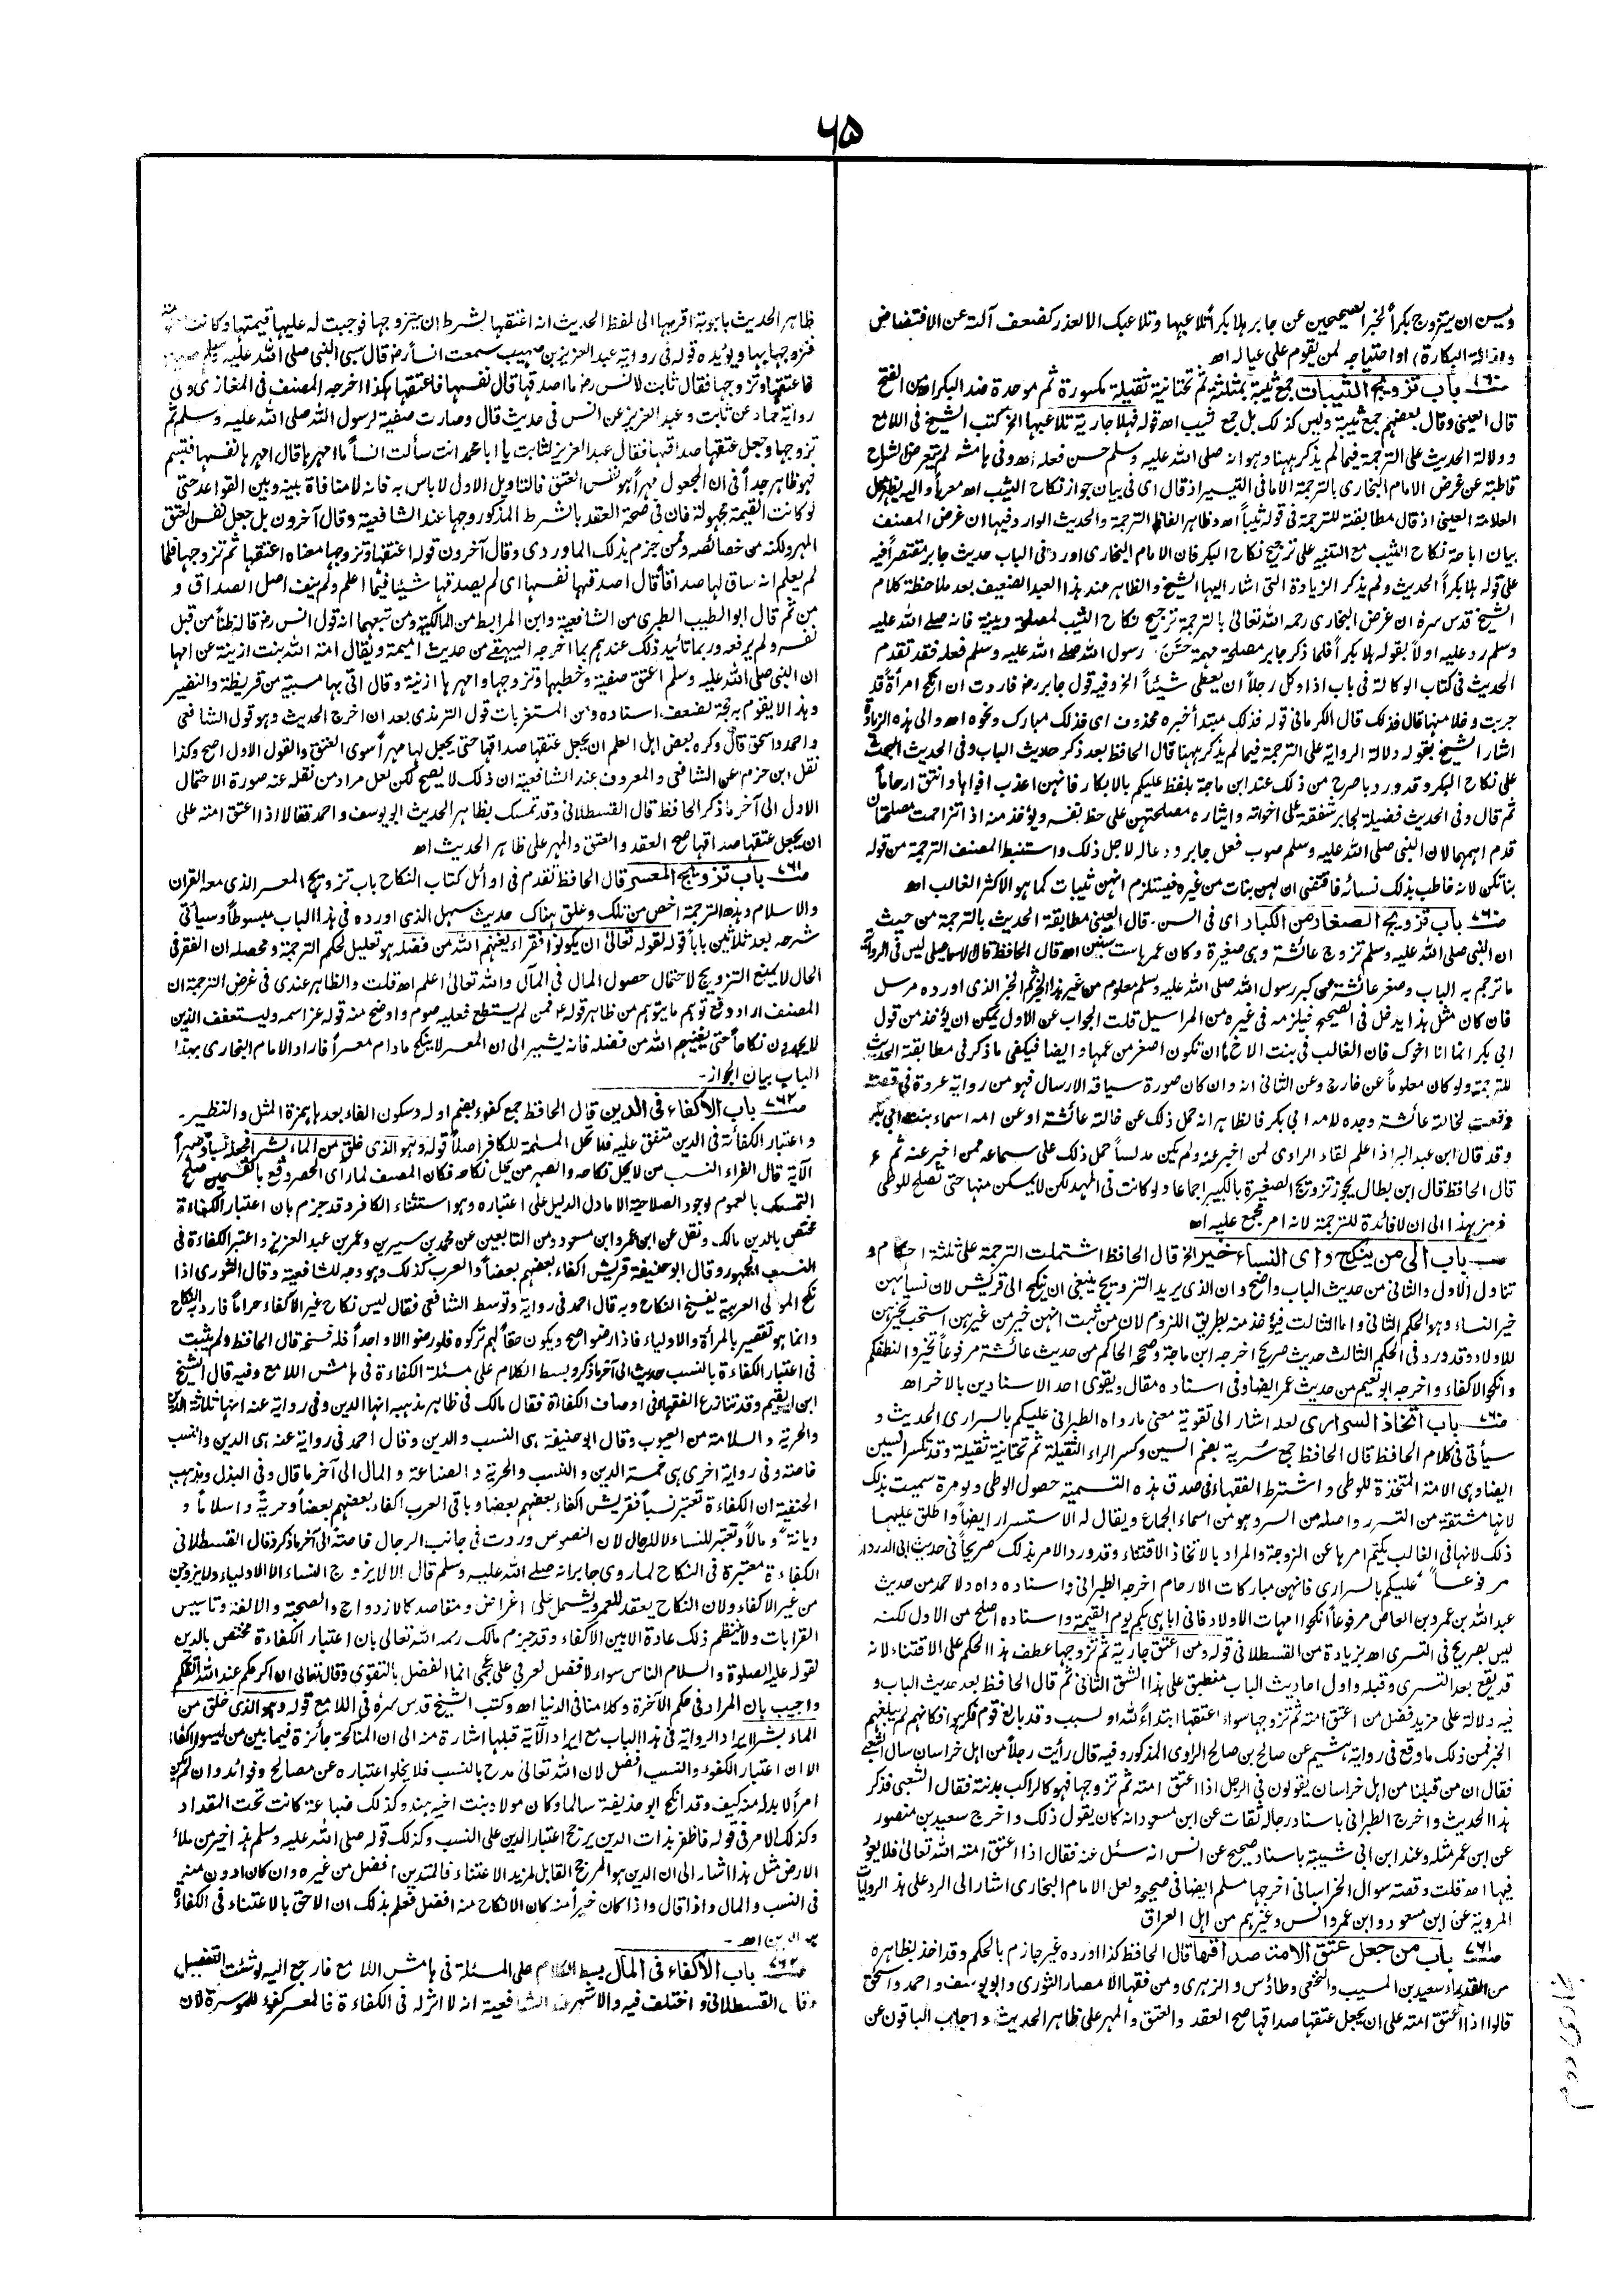 ٦٥
ويسن ان يتزوج بكرا لخبر الصحيحين عن جابر هلا بكرا تلاعبها وتلاعبك الا لعذر كضعف آلته عن الافتضاض
او احتياجه لمن يقوم على عياله اه
باب تزويج الثيبات جمع ثيبة بمثلثة ثم تحتانية ثقيلة مكسورة ثم موحدة ضد البكر اه من الفتح
قال العينى وقال بعضهم جمع ثيبة وليس كذلك بل جمع ثيب اه قوله فهلا جارية تلاعبها الخ كتب الشيخ فى اللامع
ودلالة الحديث على الترجمة فيما لم يذكر ههنا وهو انه صلى الله عليه وسلم حسن فعله اه وفى هامشه لم يتعرض الشراح
قاطبة عن غرض الامام البخارى بالترجمة الا ما فى التيسير اذ قال اى فى بيان جواز نكاح الثيب اه معربا واليه
العلامة العينى اذ قال مطابقته للترجمة فى قوله ثيبا اه وظاهر الفاظ الترجمة والحديث الوارد فيها ان غرض المصنف
بيان اباحة نكاح الثيب مع التنبيه على ترجيح نكاح البكر فان الامام البخارى اورد فى الباب حديث جابر مقتصرا فيه
على قوله هلا بكرا الحديث ولم يذكر الزيادة التى اشار اليها الشيخ والظاهر عند هذا العبد الضعيف بعد ملاحظة كلام
الشيخ قدس سره ان غرض البخارى رحمه الله تعالى بالترجمة ترجيح نكاح الثيب لمصلحة دينية فانه صلى الله عليه
وسلم رد عليه اولا بقوله هلا بكرا فلما ذكر جابر مصلحة مهمة حسّن رسول الله صلى الله عليه وسلم فعله فقد تقدم
الحديث فى كتاب الوكالة فى باب اذا وكل رجلا ان يعطى شيئا الخ وفيه قول جابر رض فاردت ان انكح امرأة قد
جربت وخلا منها قال فذلك قال الكرمانى قوله فذلك مبتدأ خبره محذوف اى فذلك مبارك ونحوه اه والى هذه الزيادة
اشار الشيخ بقوله دلالة الرواية على الترجمة فيما لم يذكر ههنا قال الحافظ بعد ذكر حديث الباب وفى الحديث الحث
على نكاح البكر وقد ورد باصرح من ذلك عند ابن ماجة بلفظ عليكم بالابكار فانهن اعذب افواها وانتق ارحاما
ثم قال وفى الحديث فضيلة لجابر لشفقته على اخواته وايثاره مصلحتهن على حظ نفسه ويؤخذ منه اذا تزاحمت مصلحتان
قدم اهمهما لان النبى صلى الله عليه وسلم صوب فعل جابر ودعا له لاجل ذلك واستنبط المصنف الترجمة من قوله
بناتكن لانه خاطب بذلك نسائه فاقتضى ان لهن بنات من غيره فيستلزم انهن ثيبات كما هو الاكثر الغالب اه
باب تزويج الصغار من الكبار اى فى السن . قال العينى مطابقة الحديث بالترجمة من حيث
ان النبى صلى الله عليه وسلم تزوج عائشة وهى صغيرة وكان عمرها ست سنين اه قال الحافظ قال الاسماعيلى ليس فى الرواية
ما ترجم به الباب وصغر عائشة من كبر رسول الله صلى الله عليه وسلم معلوم من غير هذا الخبر ثم الخبر الذى اورده مرسل
فان كان مثل هذا يدخل فى الصحيح فيلزمه فى غيره من المراسيل قلت الجواب عن الاول يمكن ان يؤخذ من قول
ابى بكر انما انا اخوك فان الغالب فى بنت الاخ ان تكون اصغر من عمها وايضا فيكفى ما ذكر فى مطابقة الحديث
للترجمة ولو كان معلوما عن خارج وعن الثانى انه وان كان صورة سياقه الارسال فهو من رواية عروة فى قصة
وقعت لخالته عائشة وجده لامه ابى بكر فالظاهر انه حمل ذلك عن خالته عائشة او عن امه اسماء بنت ابى بكر
وقد قال ابن عبد البر اذا علم لقاء الراوى لمن اخبر عنه ولم يكن مدلسا حمل ذلك على سماعه ممن اخبر عنه ثم
قال الحافظ قال ابن بطال يجوز تزويج الصغيرة بالكبير اجماعا ولو كانت فى المهد لكن لا يمكن منها حتى تصلح للوطى
فرمز بهذا الى ان لا فائدة للترجمة لانه امر مجمع عليه اه
باب الى من ينكح واى النساء خير الخ قال الحافظ اشتملت الترجمة على ثلثة احكام و
تناول الاول والثانى من حديث الباب واضح وان الذى يريد التزويج ينبغى ان ينكح الى قريش لان نسائهن
خير النساء وهو الحكم الثانى واما الثالث فيؤخذ منه بطريق اللزوم لان من ثبت انهن خير من غيرهن استحب تخيرهن
للاولاد وقد ورد فى الحكم الثالث حديث صريح اخرجه ابن ماجة وصححه الحاكم من حديث عائشة مرفوعا تخيروا لنطفكم
وانكحوا الاكفاء واخرجه ابو نعيم من حديث عمر ايضا وفى اسناده مقال ويقوى احد الاسنادين بالاخر اه
باب اتخاذ السرارى لعله اشار الى تقوية معنى ما رواه الطبرانى عليكم بالسرارى الحديث و
سيأتى فى كلام الحافظ قال الحافظ جمع سُرية بضم السين وكسر الراء الثقيلة ثم تحتانية ثقيلة وقد تكسر السين
ايضا وهى الامة المتخذة للوطى واشترط الفقهاء فى صدق هذه التسمية حصول الوطى ولو مرة سميت بذلك
لانها مشتقة من التسرر واصله من السر وهو من اسماء الجماع ويقال له الاستسرار ايضا واطلق عليها
ذلك لانها فى الغالب يكتم امرها عن الزوجة والمراد بالاتخاذ الاقتناء وقد ورد الامر بذلك صريحا فى حديث ابى الدرداء
مرفوعا عليكم بالسرارى فانهن مباركات الارحام اخرجه الطبرانى واسناده واه ولاحمد من حديث
عبد الله بن عمرو بن العاص مرفوعا انكحوا امهات الاولاد فانى اباهى بكم يوم القيمة واسناده اصلح من الاول لكنه
ليس بصريح فى التسرى اه بزيادة من القسطلانى قوله ومن اعتق جارية ثم تزوجها عطف هذا الحكم على الاقتناء لانه
قد يقع بعد التسرى وقبله واول احاديث الباب منطبق على هذا الشق الثانى ثم قال الحافظ بعد حديث الباب و
فيه دلالة على مزيد فضل من اعتق امته ثم تزوجها سواء اعتقها ابتداء لله او لسبب وقد بالغ قوم فكرهوا فكانهم لم يبلغهم
الخبر فمن ذلك ما وقع فى رواية هشيم عن صالح بن صالح الراوى المذكور وفيه قال رأيت رجلا من اهل خراسان سأل الشعبى
فقال ان من قبلنا من اهل خراسان يقولون فى الرجل اذا اعتق امته ثم تزوجها فهو كالراكب بدنته فقال الشعبى فذكر
هذا الحديث واخرج الطبرانى باسناد رجاله ثقات عن ابن مسعود انه كان يقول ذلك واخرج سعيد بن منصور
عن ابن عمر مثله وعند ابن ابى شيبة باسناد صحيح عن انس انه سئل عنه فقال اذا اعتق امته لله تعالى فلا يعود
فيها اه قلت وقصة سوال الخراسانى اخرجها مسلم ايضا فى صحيحه ولعل الامام البخارى اشار الى الرد على هذه الروايات
المروية عن ابن مسعود وابن عمر وانس وغيرهم من اهل العراق
باب من جعل عتق الامة صداقها قال الحافظ كذا اورده غير جازم بالحكم وقد اخذ بظاهره
من القدماء سعيد بن المسيب والنخعى وطاؤس والزهرى ومن فقهاء الامصار الثورى وابو يوسف واحمد واسحق
قالوا اذا اعتق امته على ان يجعل عتقها صداقها صح العقد والعتق والمهر على ظاهر الحديث واجاب الباقون عن
ظاهر الحديث باجوبة اقربها الى لفظ الحديث انه اعتقها بشرط ان يتزوجها فوجبت له عليها قيمتها وكانت
فتزوجها بها ويؤيده قوله فى رواية عبد العزيز بن صهيب سمعت انسا رض قال سبى النبى صلى الله عليه وسلم صفية
فاعتقها وتزوجها فقال ثابت لانس رض ما اصدقها قال نفسها فاعتقها هكذا اخرجه المصنف فى المغازى وفى
رواية حماد عن ثابت وعبد العزيز عن انس فى حديث قال وصارت صفية لرسول الله صلى الله عليه وسلم ثم
تزوجها وجعل عتقها صداقها فقال عبد العزيز لثابت يا ابا محمد انت سألت انسا ما امهرها قال امهرها نفسها فتبسم
فهو ظاهر جدا فى ان المجعول مهرا هو نفس العتق فالتاويل الاول لا باس به فانه لا منافاة بينه وبين القواعد حتى
لو كانت القيمة مجهولة فان فى صحة العقد بالشرط المذكور وجها عند الشافعية وقال آخرون بل جعل نفس العتق
المهر ولكنه من خصائصه وممن جزم بذلك الماوردى وقال آخرون قوله اعتقها وتزوجها معناه اعتقها ثم تزوجها فلما
لم يعلم انه ساق لها صداقا قال اصدقها نفسها اى لم يصدقها شيئا فيما اعلم ولم ينف اصل الصداق و
من ثم قال ابو الطيب الطبرى من الشافعية وابن المرابط من المالكية ومن تبعهما انه قول انس رض قاله ظنا من قبل
نفسه ولم يرفعه وربما تائيد ذلك عندهم بما اخرجه البيهقى من حديث اميمة ويقال امة الله بنت رزينة عن امها
ان النبى صلى الله عليه وسلم اعتق صفية وخطبها وتزوجها وامهرها رزينة وقال اتى بها مسبية من قريظة والنضير
وهذا لا يقوم به حجة لضعف اسناده ومن المستغربات قول الترمذى بعد ان اخرج الحديث وهو قول الشافعى
واحمد واسحق قال وكره بعض اهل العلم ان يجعل عتقها صداقها حتى يجعل لها مهرا سوى العتق والقول الاول اصح وكذا
نقل ابن حزم عن الشافعى والمعروف عند الشافعية ان ذلك لا يصح لكن لعل مراد من نقله عنه صورة الاحتمال
الاول الى آخر ما ذكر الحافظ قال القسطلانى وقد تمسك بظاهر الحديث ابو يوسف واحمد فقالا اذا اعتق امته على
ان يجعل عتقها صداقها صح العقد والعتق والمهر على ظاهر الحديث اه
٧٦١ باب تزويج المعسر قال الحافظ تقدم فى اوائل كتاب النكاح باب تزويج المعسر الذى معه القران
والاسلام وهذه الترجمة اخص من تلك وعلق هناك حديث سهل الذى اورده فى هذا الباب مبسوطا وسيأتى
شرحه بعد ثلاثين بابا قوله لقوله تعالى ان يكونوا فقراء يغنهم الله من فضله هو تعليل لحكم الترجمة ومحصله ان الفقر فى
الحال لا يمنع التزويج لاحتمال حصول المال فى المآل والله تعالى اعلم اه قلت والظاهر عندى فى غرض الترجمة ان
المصنف اراد دفع توهم ما يتوهم من ظاهر قوله ع فمن لم يستطع فعليه صوم واوضح منه قوله عز اسمه وليستعفف الذين
لا يجدون نكاحا حتى يغنيهم الله من فضله فانه يشير الى ان المعسر لا ينكح ما دام معسرا فاراد الامام البخارى بهذا
الباب بيان الجواز۔
٧٦٢ باب الاكفاء فى الدين قال الحافظ جمع كفوء بضم اوله وسكون الفاء بعدها همزة المثل والنظير۔
واعتبار الكفائة فى الدين متفق عليه فلا تحل المسلمة للكافر اصلا قوله وهو الذى خلق من الماء بشرا فجعله نسبا وصهرا
الآية قال الفراء النسب من لا يحل نكاحه والصهر من يحل نكاحه فكان المصنف لما رأى الحصر وقع بالقسمين صلح
التمسك بالعموم لوجود الصلاحية الا ما دل الدليل على اعتباره وهو استثناء الكافر وقد جزم بان اعتبار الكفاءة
مختص بالدين مالك ونقل عن ابن عمر وابن مسعود ومن التابعين عن محمد بن سيرين وعمر بن عبد العزيز واعتبر الكفاءة فى
النسب الجمهور وقال ابو حنيفة قريش اكفاء بعضهم بعضا والعرب كذلك وهو وجه للشافعية وقال الثورى اذا
نكح المولى العربية يفسخ النكاح وبه قال احمد فى رواية وتوسط الشافعى فقال ليس نكاح غير الاكفاء حراما فارد به النكاح
وانما هو تقصير بالمرأة والاولياء فاذا رضوا صح ويكون حقا لهم تركوه فلو رضوا الا واحدا فله فسخه قال الحافظ ولم يثبت
فى اعتبار الكفاءة بالنسب حديث الى آخر ما ذكر وبسط الكلام على مسئلة الكفاءة فى هامش اللامع وفيه قال الشيخ
ابن القيم وقد تنازع الفقهاء فى اوصاف الكفاءة فقال مالك فى ظاهر مذهبه انها الدين وفى رواية عنه انها ثلاثة الدين
والحرية والسلامة من العيوب وقال ابو حنيفة هى النسب والدين وقال احمد فى رواية عنه هى الدين والنسب
خاصة وفى رواية اخرى هى خمسة الدين والنسب والحرية والصناعة والمال الى آخر ما قال وفى البذل ومذهب
الحنفية ان الكفاءة تعتبر نسبا فقريش اكفاء بعضهم بعضا وباقى العرب اكفاء بعضهم بعضا وحرية واسلاما و
ديانة ومالا وتعتبر للنساء لا للرجال لان النصوص وردت فى جانب الرجال خاصة الى آخر ما ذكر وقال القسطلانى
الكفاءة معتبرة فى النكاح لما روى جابر انه صلى الله عليه وسلم قال الا لا يزوج النساء الا الاولياء ولا يزوجن
من غير الاكفاء ولان النكاح يعقد للعمر ويشتمل على اغراض ومقاصد كالازدواج والصحبة والالفة وتاسيس
القرابات ولا ينتظم ذلك عادة الا بين الاكفاء وقد جزم مالك رحمه الله تعالى بان اعتبار الكفاءة مختص بالدين
لقوله عليه الصلوة والسلام الناس سواء لا فضل لعربى على عجمى انما الفضل بالتقوى وقال تعالى ان اكرمكم عند الله اتقكم
واجيب بان المراد فى حكم الآخرة وكلامنا فى الدنيا اه وكتب الشيخ قدس سره فى اللامع قوله وهو الذى خلق من
الماء بشرا ايراد الرواية فى هذا الباب مع ايراد الآية قبلها اشارة منه الى ان المناكحة جائزة فيما بين من ليسوا اكفاء
الا ان اعتبار الكفوء والنسب افضل لان الله تعالى مدح بالنسب فلا يخلو اعتباره عن مصالح وفوائد وان لم يكن
امرا لا بد له منه كيف وقد انكح ابو حذيفة سالما وكان مولاه بنت اخيه هند وكذلك ضباعة كانت تحت المقداد
وكذلك الامر فى قوله فاظفر بذات الدين يرجح اعتبار الدين على النسب وكذلك قوله صلى الله عليه وسلم هذا خير من ملاء
الارض مثل هذا اشار الى ان الدين هو المرجح القابل لمزيد الاعتناء فالمتدين افضل من غيره وان كان ادون منه
فى النسب والمال واذا قال واذا كان خيرا منه كان الانكاح منه افضل فعلم بذلك ان الاحق بالاعتناء فى الكفاءة
هو الدين اه۔
باب الاكفاء فى المال بسط الكلام على المسئلة فى هامش اللامع فارجع اليه لو شئت التفصيل
وقال القسطلانى واختلف فيه والاشهر عند الشافعية انه لا اثر له فى الكفاءة فالمعسر كفوء للموسرة لان